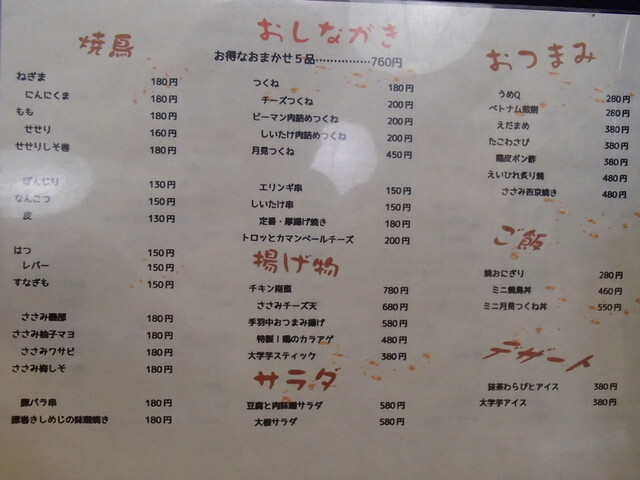 焼鳥
ねぎま 180円
にんにくま 180円
もも 180円
せせり 160円
せせりしそ巻 180円
ぼんじり 130円
なんこつ 150円
皮 130円
はつ 150円
レバー 150円
すなぎも 150円
ささみ磯部 180円
ささみ柚子マヨ 180円
ささみワサビ 180円
ささみ梅しそ 180円
豚バラ串 180円
豚巻きしめじの味噌焼き 180円
おしながき
お得なおまかせ5品……………760円
つくね 180円
チーズつくね 200円
ピーマン肉詰めつくね 200円
しいたけ肉詰めつくね 200円
月見つくね 450円
エリンギ串 150円
しいたけ串 150円
定番・厚揚げ焼き 180円
トロッとカマンベールチーズ 200円
揚げ物
チキン南蛮 780円
ささみチーズ天 680円
手羽中おつまみ揚げ 580円
特製!鶏のカラアゲ 480円
大学芋スティック 380円
サラダ
豆腐と肉味噌サラダ 580円
大根サラダ 580円
おつまみ
うめQ 280円
ベトナム煎餅 280円
えだまめ 380円
たこわさび 380円
鶏皮ポン酢 380円
えいひれ炙り焼 480円
ささみ西京焼き 480円
ご飯
焼おにぎり 280円
ミニ焼鳥丼 460円
ミニ月見つくね丼 550円
デザート
抹茶わらびとアイス 380円
大学芋アイス 380円